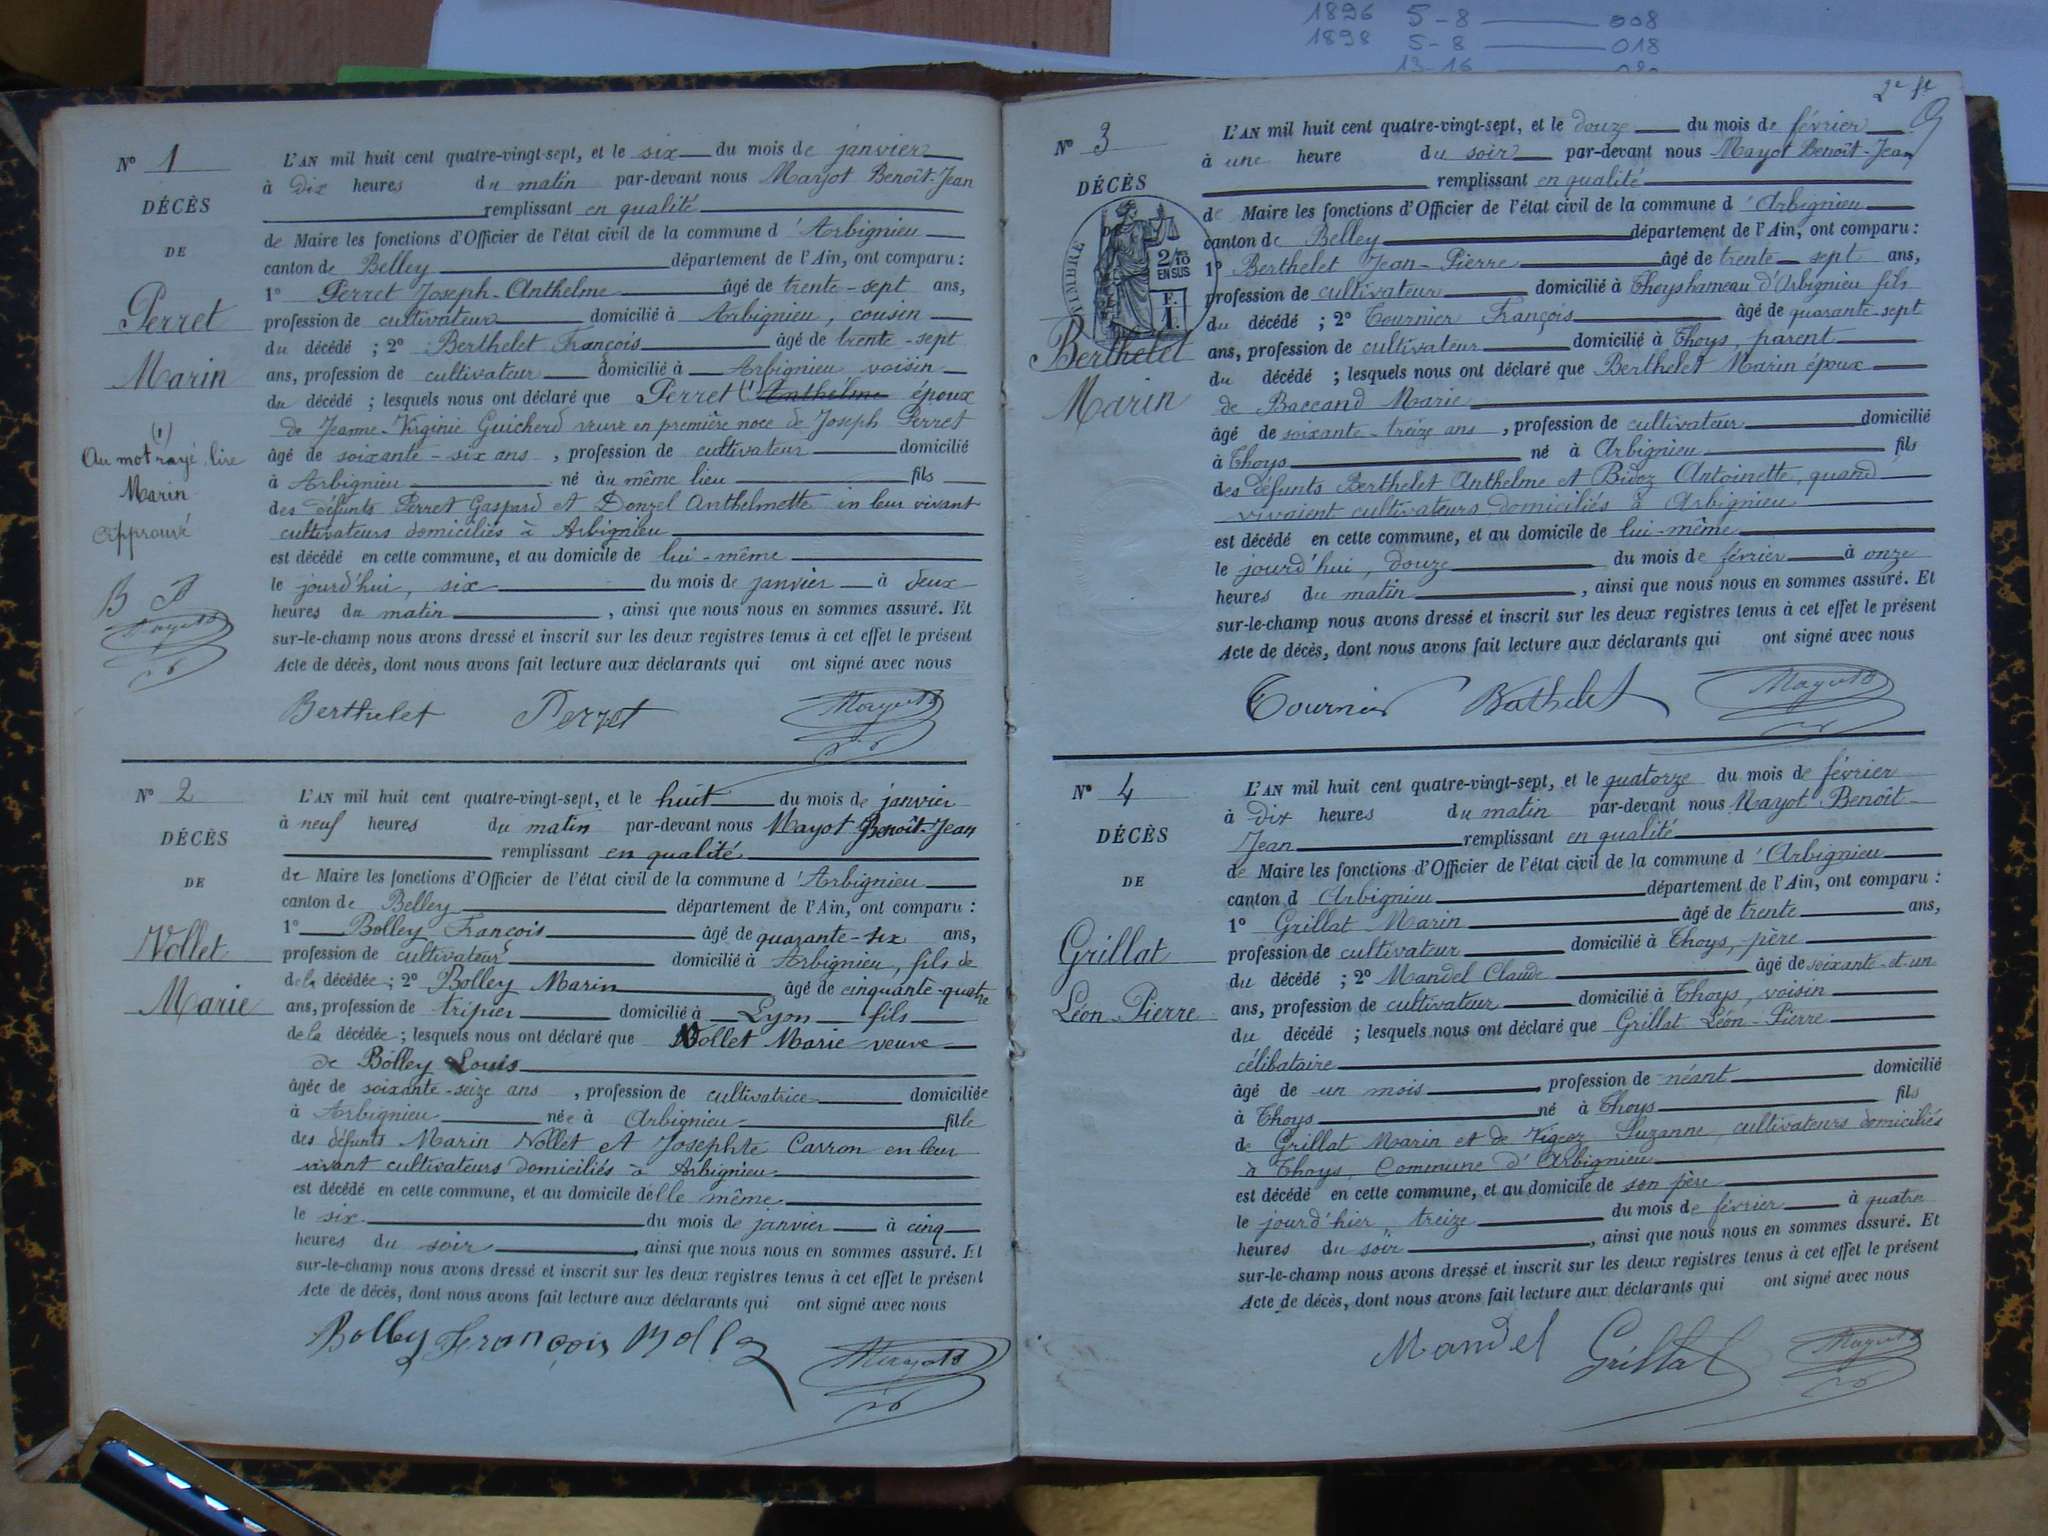 1896 5-8 008
1898 5-8 018
13-16
N° 1
DÉCÈS
DE
Perret
Marin
(1)
Au mot rayé, lire
Marin
Approuvé
B P
L'AN mil huit cent quatre-vingt-sept, et le six du mois de janvier
à dix heures du matin par-devant nous Mayot Benoît-Jean
remplissant en qualité
de Maire les fonctions d'Officier de l'état civil de la commune d'Arbignieu
canton de Belley département de l'Ain, ont comparu :
1° Perret Joseph-Anthelme âgé de trente-sept ans,
profession de cultivateur domicilié à Arbignieu, cousin
du décédé ; 2° Berthelet François âgé de trente-sept
ans, profession de cultivateur domicilié à Arbignieu voisin
du décédé ; lesquels nous ont déclaré que Perret (1) Anthelme époux
de Jeanne-Virginie Guicherd veuve en première noce de Joseph Perret
âgé de soixante-six ans, profession de cultivateur domicilié
à Arbignieu né au même lieu fils
des défunts Perret Gaspard et Donzel Anthelmette in leur vivant
cultivateurs domiciliés à Arbignieu
est décédé en cette commune, et au domicile de lui-même
le jourd'hui, six du mois de janvier à deux
heures du matin, ainsi que nous nous en sommes assuré. Et
sur-le-champ nous avons dressé et inscrit sur les deux registres tenus à cet effet le présent
Acte de décès, dont nous avons fait lecture aux déclarants qui ont signé avec nous
Berthelet Perret
N° 2
DÉCÈS
DE
Vollet
Marie
L'AN mil huit cent quatre-vingt-sept, et le huit du mois de janvier
à neuf heures du matin par-devant nous Mayot Benoît-Jean
remplissant en qualité
de Maire les fonctions d'Officier de l'état civil de la commune d'Arbignieu
canton de Belley département de l'Ain, ont comparu :
1° Bolley François âgé de quarante-six ans,
profession de cultivateur domicilié à Arbignieu, fils de
de la décédée ; 2° Bolley Marin âgé de cinquante-quatre
ans, profession de tripier domicilié à Lyon fils
de la décédée ; lesquels nous ont déclaré que Vollet Marie veuve
de Bolley Louis
âgée de soixante-seize ans, profession de cultivatrice domiciliée
à Arbignieu née à Arbignieu fille
des défunts Marin Vollet et Josephte Carron en leur
vivant cultivateurs domiciliés à Arbignieu
est décédé en cette commune, et au domicile delle même
le six du mois de janvier à cinq
heures du soir, ainsi que nous nous en sommes assuré. Et
sur-le-champ nous avons dressé et inscrit sur les deux registres tenus à cet effet le présent
Acte de décès, dont nous avons fait lecture aux déclarants qui ont signé avec nous
Bolley François Bolley
2e
N° 3
DÉCÈS
TIMBRE
2/10
EN SUS
F.
1.
Berthelet
Marin
L'AN mil huit cent quatre-vingt-sept, et le douze du mois de février
à une heure du soir par-devant nous Mayot Benoît-Jean
remplissant en qualité
de Maire les fonctions d'Officier de l'état civil de la commune d'Arbignieu
canton de Belley département de l'Ain, ont comparu :
1° Berthelet Jean-Pierre âgé de trente-sept ans,
profession de cultivateur domicilié à Thoys hameau d'Arbignieu fils
du décédé ; 2° Tournier François âgé de quarante-sept
ans, profession de cultivateur domicilié à Thoys, parent
du décédé ; lesquels nous ont déclaré que Berthelet Marin époux
de Baccand Marie
âgé de soixante-treize ans, profession de cultivateur domicilié
à Thoys né à Arbignieu fils
des défunts Berthelet Anthelme et Bidoz Antoinette, quand
vivaient cultivateurs domiciliés à Arbignieu
est décédé en cette commune, et au domicile de lui-même
le jourd'hui, douze du mois de février à onze
heures du matin, ainsi que nous nous en sommes assuré. Et
sur-le-champ nous avons dressé et inscrit sur les deux registres tenus à cet effet le présent
Acte de décès, dont nous avons fait lecture aux déclarants qui ont signé avec nous
Tournier Berthelet
N° 4
DÉCÈS
DE
Grillat
Léon-Pierre
L'AN mil huit cent quatre-vingt-sept, et le quatorze du mois de février
à dix heures du matin par-devant nous Mayot Benoît-
Jean remplissant en qualité
de Maire les fonctions d'Officier de l'état civil de la commune d'Arbignieu
canton d Arbignieu département de l'Ain, ont comparu :
1° Grillat Marin âgé de trente ans,
profession de cultivateur domicilié à Thoys, père
du décédé ; 2° Mandel Claude âgé de soixante-et-un
ans, profession de cultivateur domicilié à Thoys, voisin
du décédé ; lesquels nous ont déclaré que Grillat Léon-Pierre
célibataire
âgé de un mois, profession de néant domicilié
à Thoys né à Thoys fils
de Grillat Marin et de Vigeoz Suzanne, cultivateurs domiciliés
à Thoys, Commune d'Arbignieu
est décédé en cette commune, et au domicile de son père
le jourd'hier, treize du mois de février à quatre
heures du soir, ainsi que nous nous en sommes assuré. Et
sur-le-champ nous avons dressé et inscrit sur les deux registres tenus à cet effet le présent
Acte de décès, dont nous avons fait lecture aux déclarants qui ont signé avec nous
Mandel Grillat